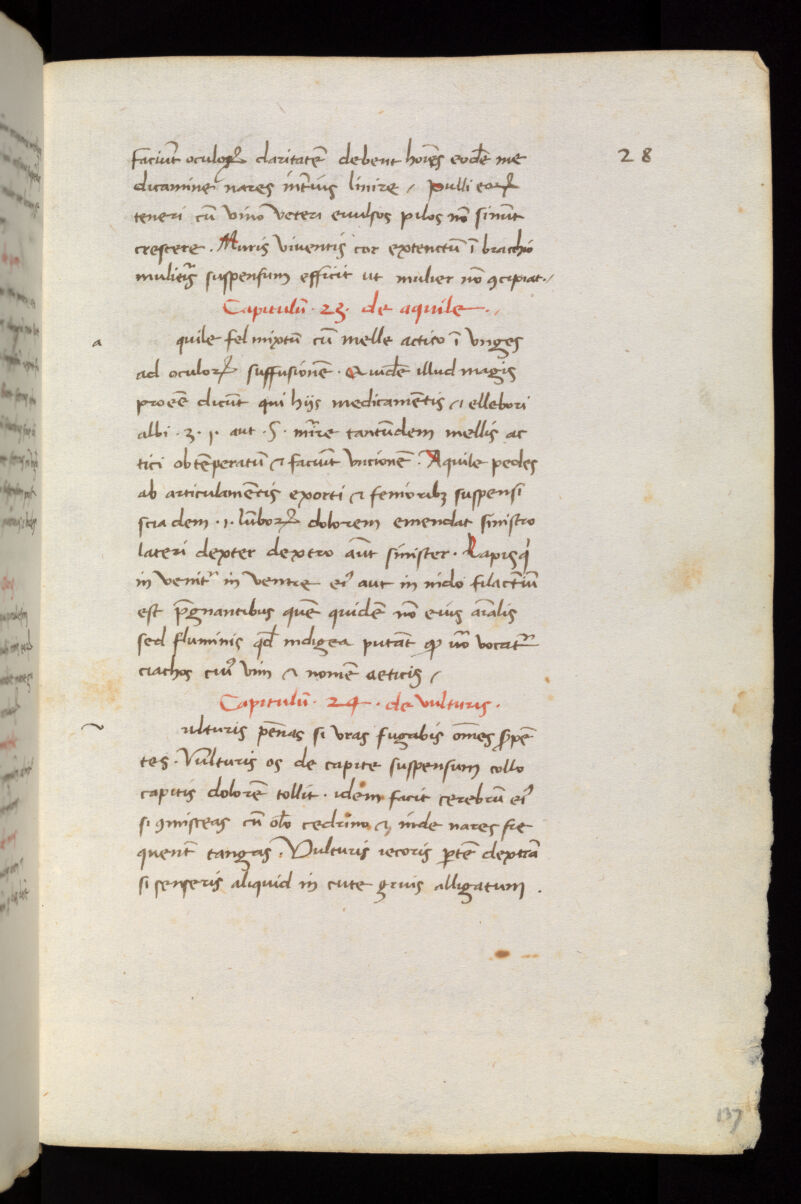 faciūt oculoꝝ claritatē debent hoīes eodē me
28
dicamine nares intꝰius linire / pulli eoꝝ
teneri cū vino veteri euulsos pilos nō sinūt
crescere . Muris viventis cor extenctū ī brachio
mulieris suspensum efficit ut mulier nō ꝯcipiat ./
Capitulū . 23 . de aquile . /
a quile fel mixtū cū melle actico ī unges
ad oculoꝝ suffusionē . Quidē illud magis
dicūt qui hijs medicamētis ⁊ ellebori
albi . ʒ . 1 . aut . tantundem mellis ac
tici obtēperatū ⁊ faciūt uncionē . Aquile pedes
ab articulamētis exorti ⁊ femoribꝫ suspensi
scia dem . 1 . lūboꝝ dolorem emendat sinistro
lateri dexter dextro aūt sinister . Lapis qͥ
in venitᷣ in ventre eiꝰ aut in nido filactīuꝫ
est p̄gnantibus quē quidē nō eius aīalis
sed fluminis qd̄ indigea putāt ꝙ vocatᷣ
ciachos cuiꝰ vim ⁊ nomē aeticis /
Capitulū . 24 . de vulturis .
ulturis pēnas si uras fugabis om̄es s̄pē
tes . Vulturis os de capite suspensum collo
capitis dolorē tollit . idem facit cerebrū eiꝰ
si ꝯmisceas cū olō cedrino ⁊ inde nares fre
quent tangas . Vulturis iecoris ꝑtē dextrā
si senseris aliquid in cute gruis alligatum .
137